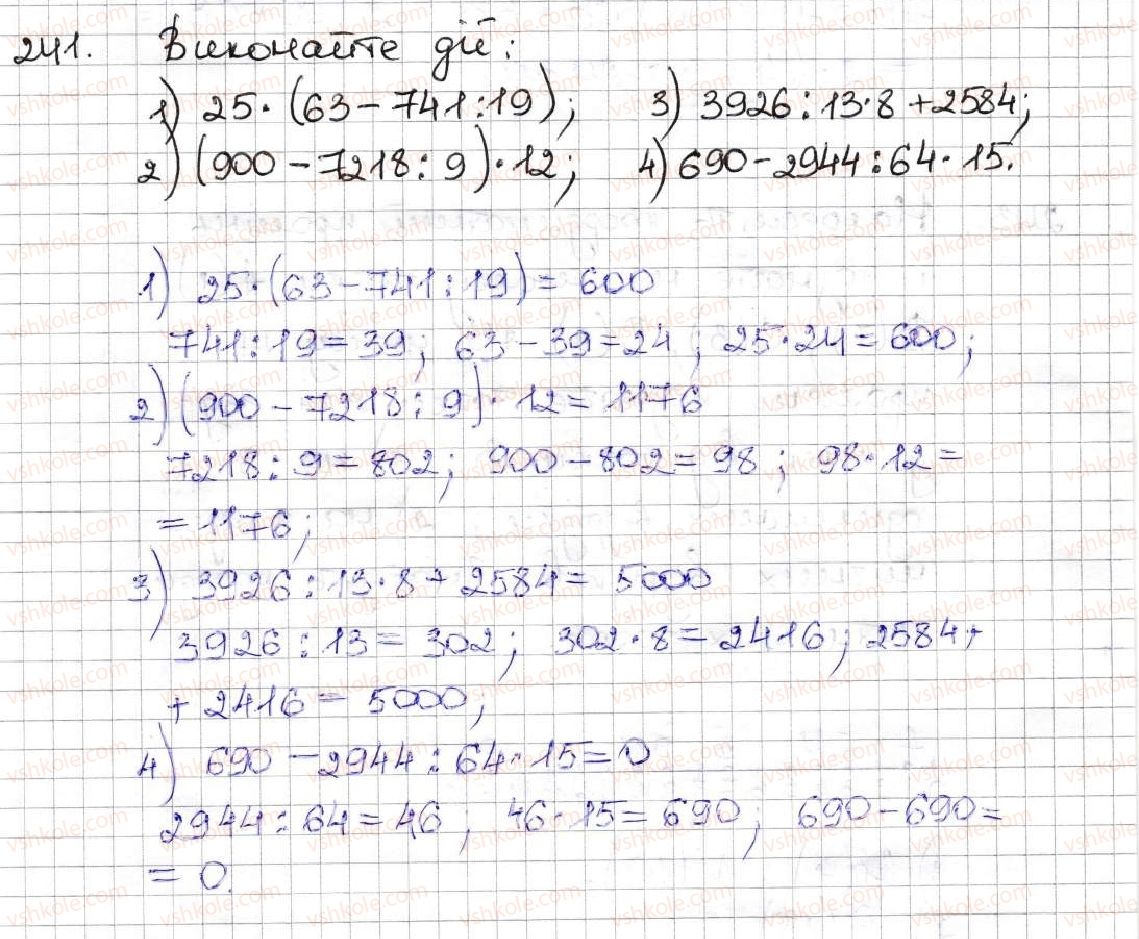 241. Виконайте дії:
1) 25·(63-741:19); 3) 3926:13·8+2584;
2) (900-7218:9)·12; 4) 690-2944:64·15.
1) 25·(63-741:19)=600
741:19=39; 63-39=24; 25·24=600;
2) (900-7218:9)·12=1176
7218:9=802; 900-802=98; 98·12=
=1176;
3) 3926:13·8+2584=5000
3926:13=302; 302·8=2416; 2584+
+2416=5000;
4) 690-2944:64·15=0
2944:64=46; 46·15=690; 690-690=
=0.
vshkole.com